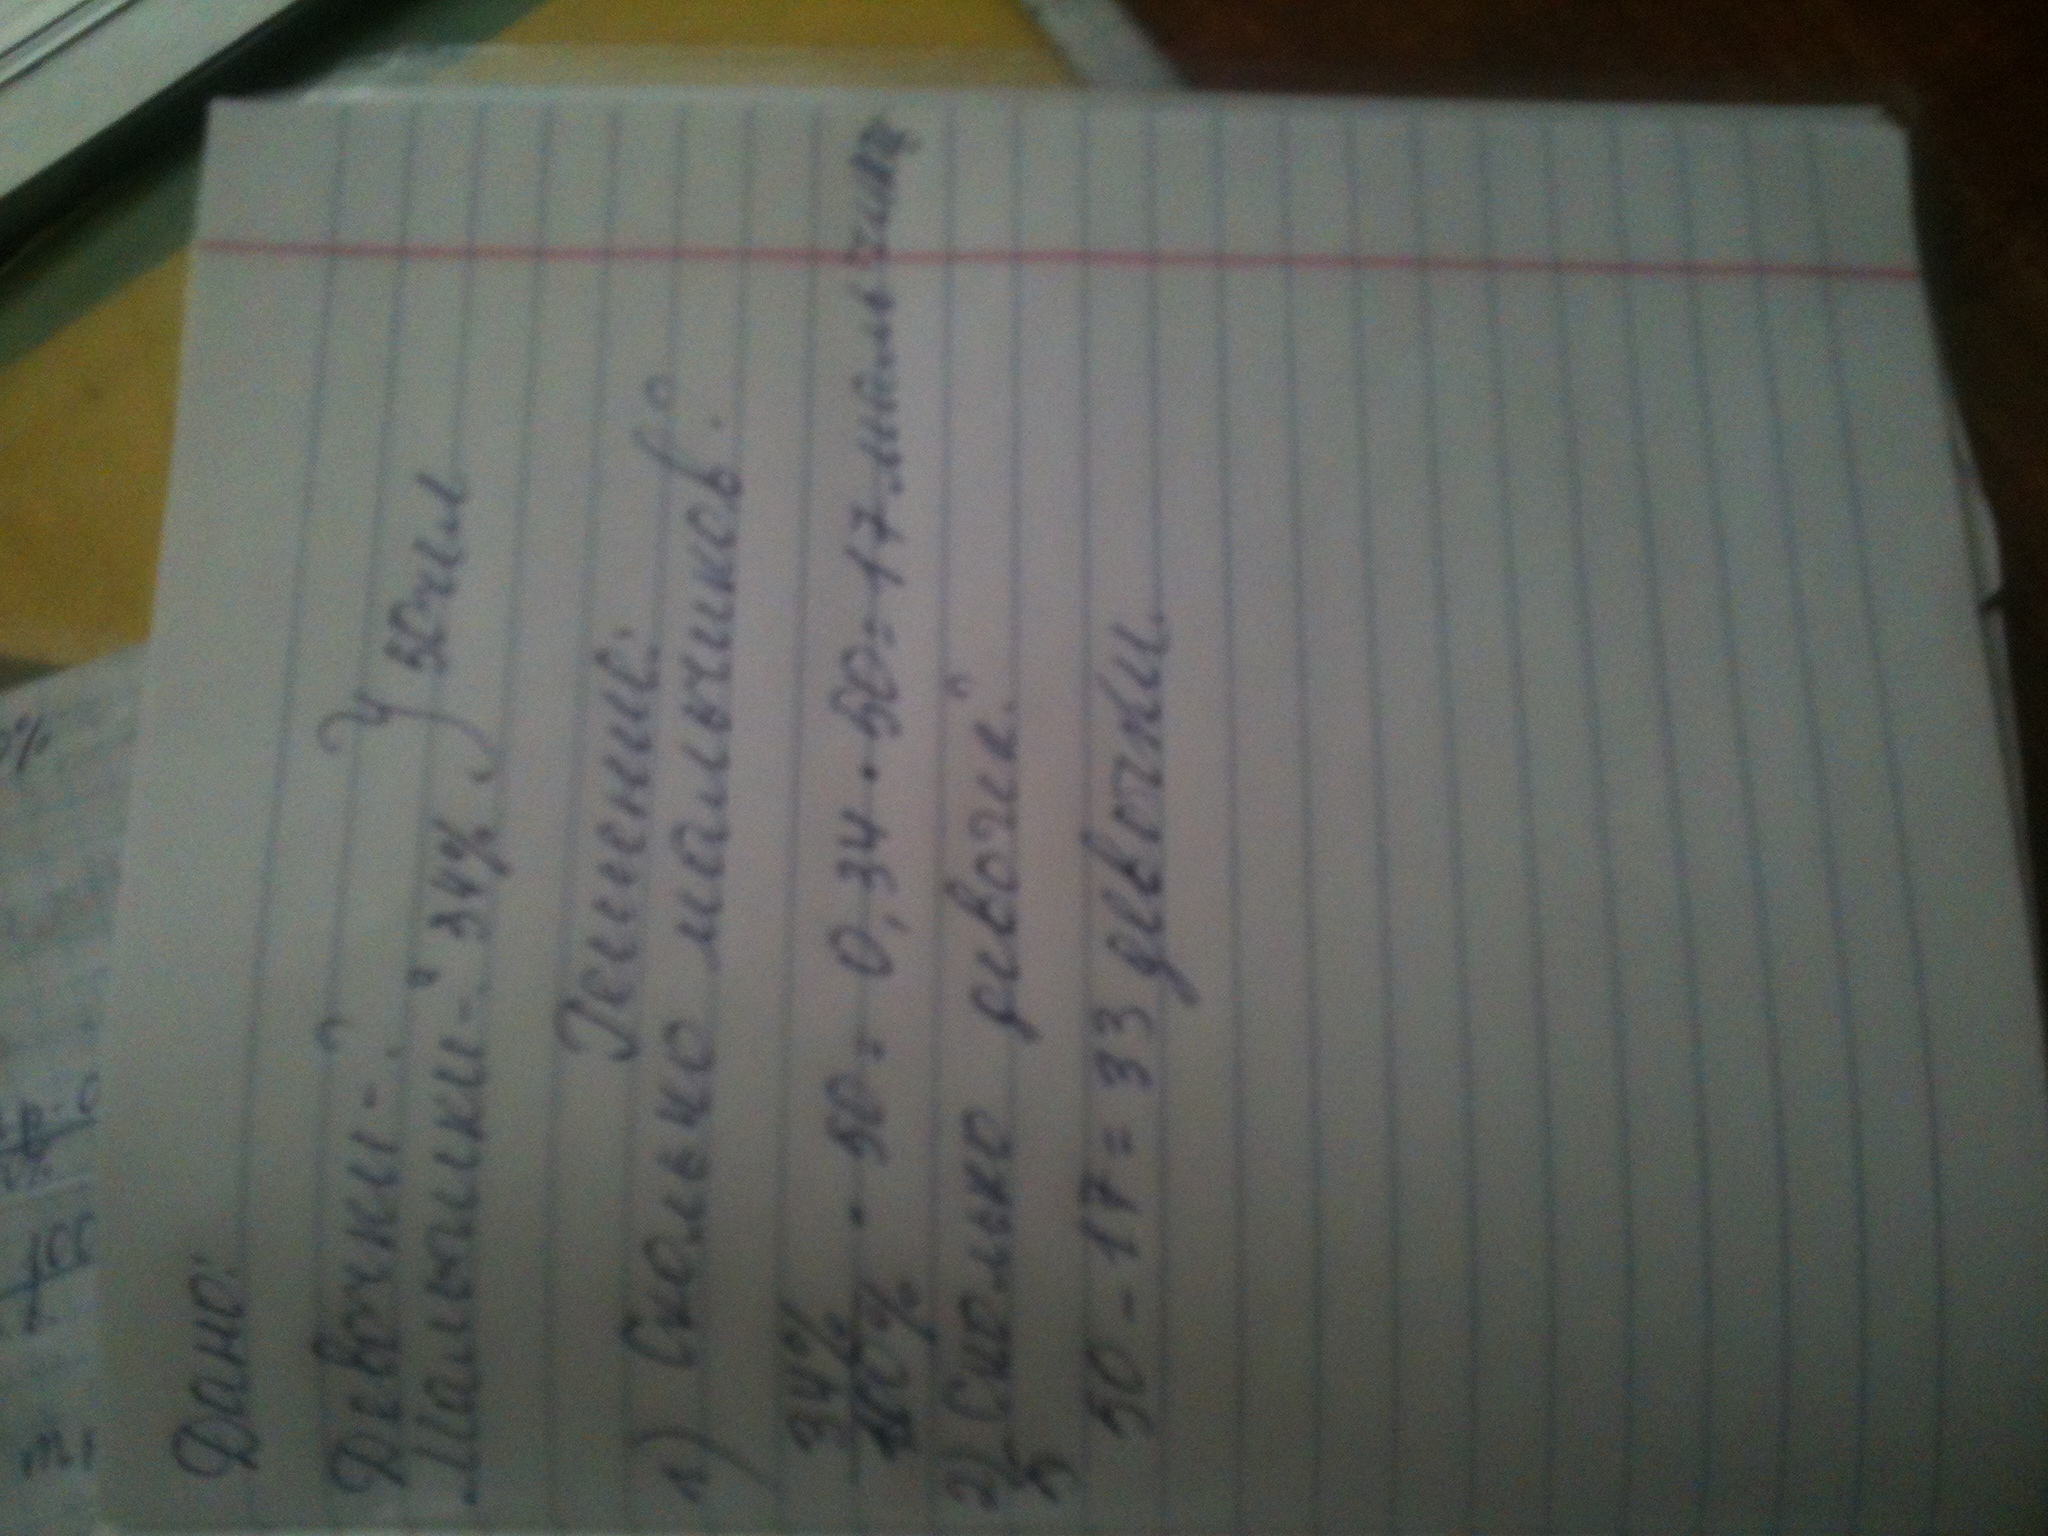 Дано:
Девочки - ?
Мальчики - ? 34% } 50 чел
Решение:
1) Сколько мальчиков?
34%/100% · 50 = 0,34 · 50 = 17 мальчики
2) Сколько девочек?
50 - 17 = 33 девочки.